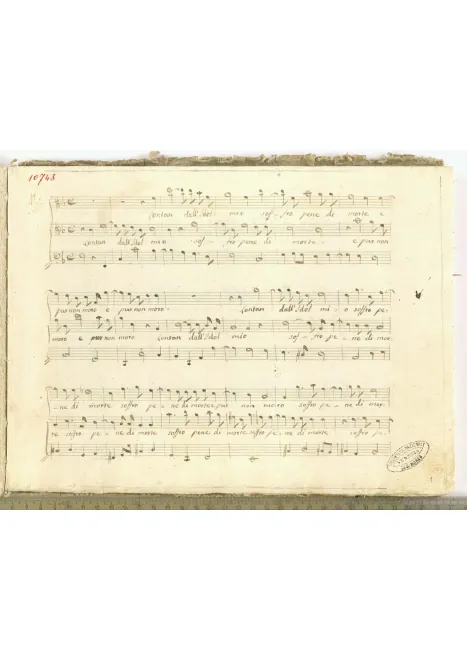 10743
Lontan dall'Idol mio sof- fro pene di morte e
Lontan dall'Idol mio sof- fro pene di morte e pur non
pur non moro e pur non moro- Lontan dall'Idol mi- o soffro pe-
moro e pur non moro Lontan dall'Idol mio sof- fro pe- ne di mor-
ne di morte soffro pe- ne di morte e pur non moro soffro pe- ne di mor-
te soffro pe- ne di morte soffro pene di morte soffro pe- ne di morte soffro pe-